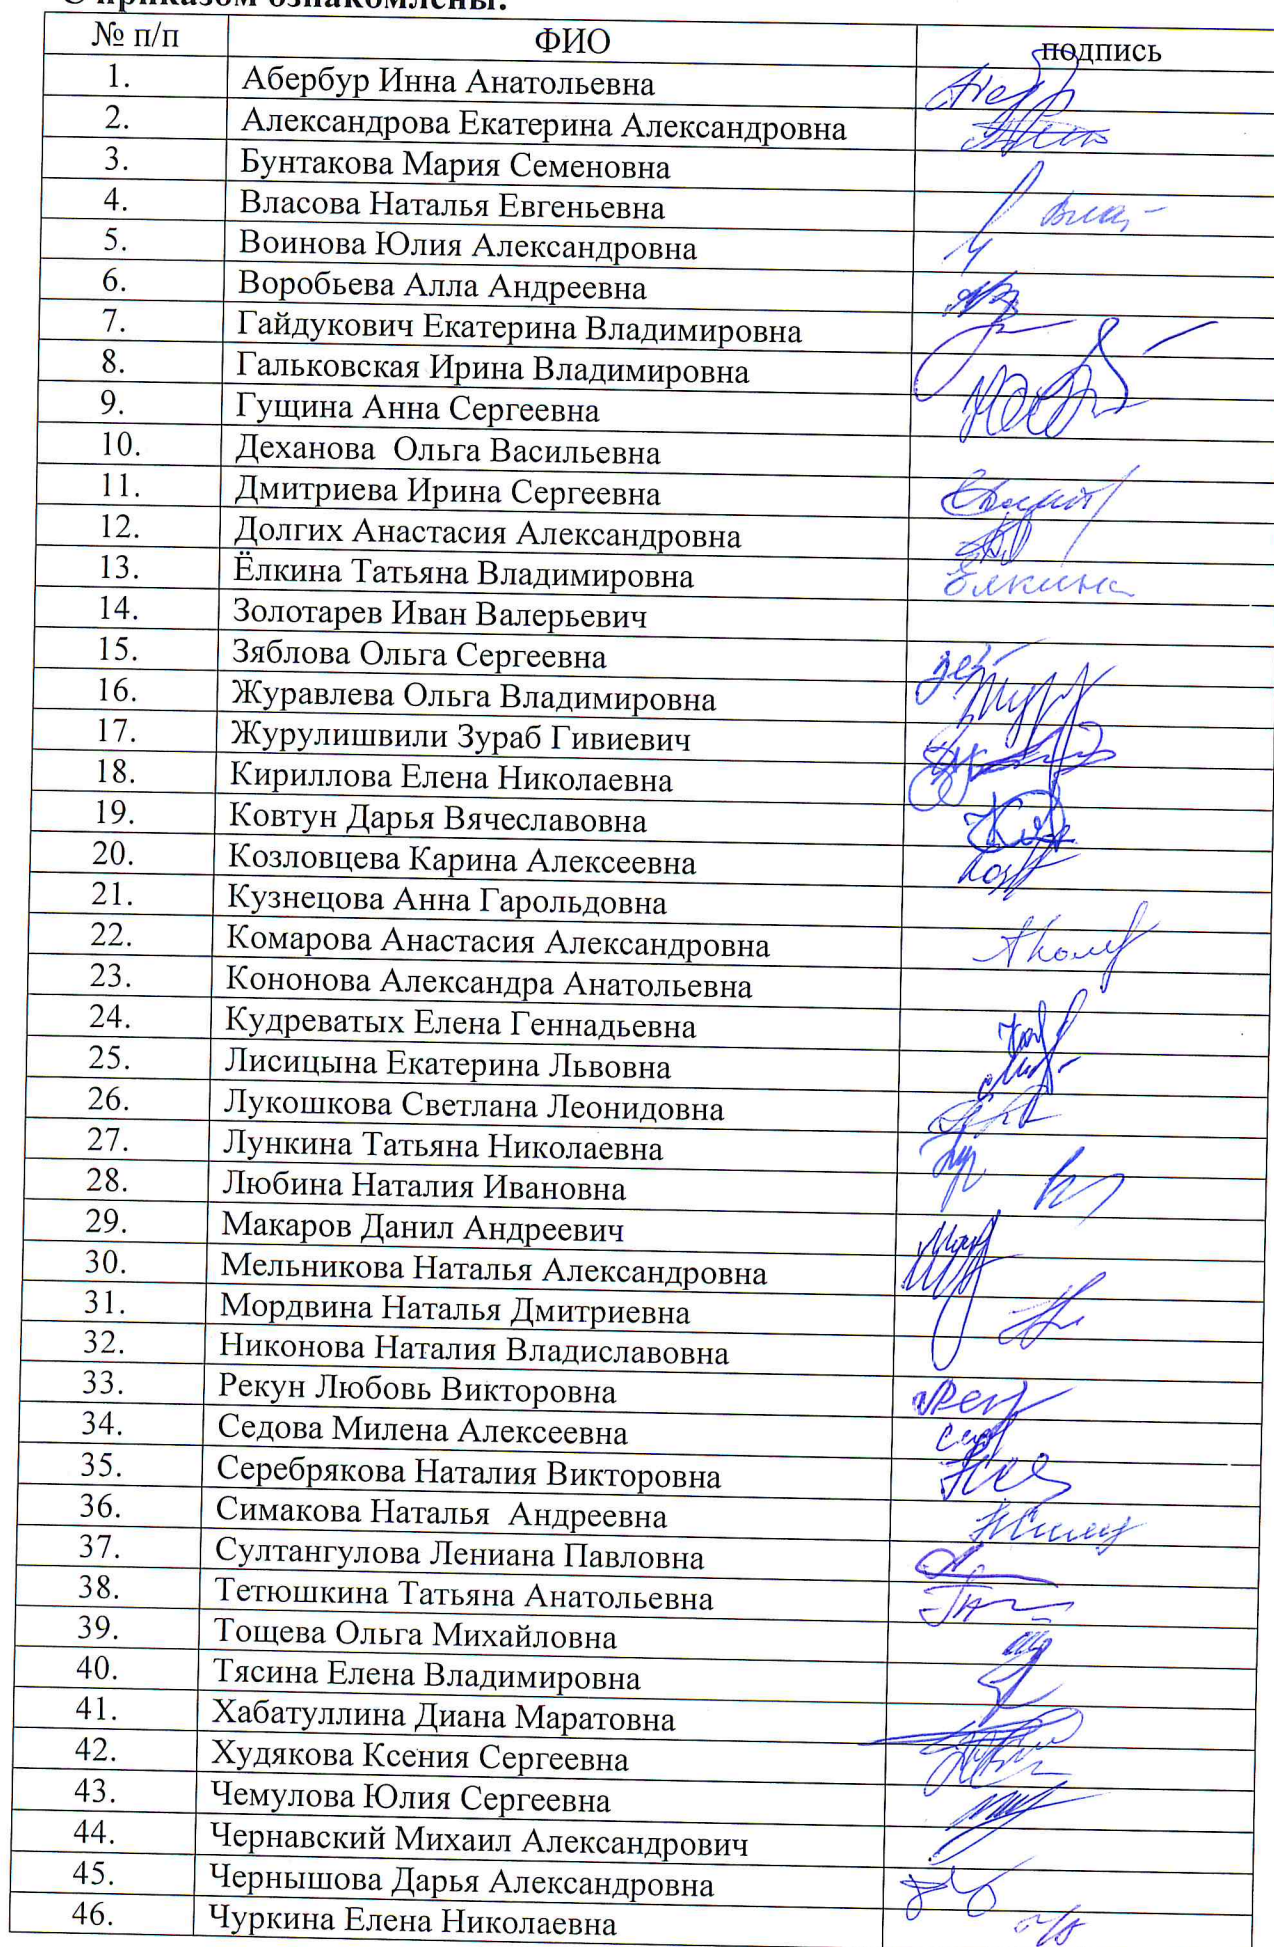 С приказом ознакомлены:
№ п/п ФИО подпись
1. Абербур Инна Анатольевна
2. Александрова Екатерина Александровна
3. Бунтакова Мария Семеновна
4. Власова Наталья Евгеньевна
5. Воинова Юлия Александровна
6. Воробьева Алла Андреевна
7. Гайдукович Екатерина Владимировна
8. Гальковская Ирина Владимировна
9. Гущина Анна Сергеевна
10. Деханова Ольга Васильевна
11. Дмитриева Ирина Сергеевна
12. Долгих Анастасия Александровна
13. Ёлкина Татьяна Владимировна Ёлкина
14. Золотарев Иван Валерьевич
15. Зяблова Ольга Сергеевна
16. Журавлева Ольга Владимировна
17. Журулишвили Зураб Гивиевич
18. Кириллова Елена Николаевна
19. Ковтун Дарья Вячеславовна
20. Козловцева Карина Алексеевна
21. Кузнецова Анна Гарольдовна
22. Комарова Анастасия Александровна
23. Кононова Александра Анатольевна
24. Кудреватых Елена Геннадьевна
25. Лисицына Екатерина Львовна
26. Лукошкова Светлана Леонидовна
27. Лункина Татьяна Николаевна
28. Любина Наталия Ивановна
29. Макаров Данил Андреевич
30. Мельникова Наталья Александровна
31. Мордвина Наталья Дмитриевна
32. Никонова Наталия Владиславовна
33. Рекун Любовь Викторовна
34. Седова Милена Алексеевна
35. Серебрякова Наталия Викторовна
36. Симакова Наталья Андреевна
37. Султангулова Лениана Павловна
38. Тетюшкина Татьяна Анатольевна
39. Тощева Ольга Михайловна
40. Тясина Елена Владимировна
41. Хабатуллина Диана Маратовна
42. Худякова Ксения Сергеевна
43. Чемулова Юлия Сергеевна
44. Чернавский Михаил Александрович
45. Чернышова Дарья Александровна
46. Чуркина Елена Николаевна